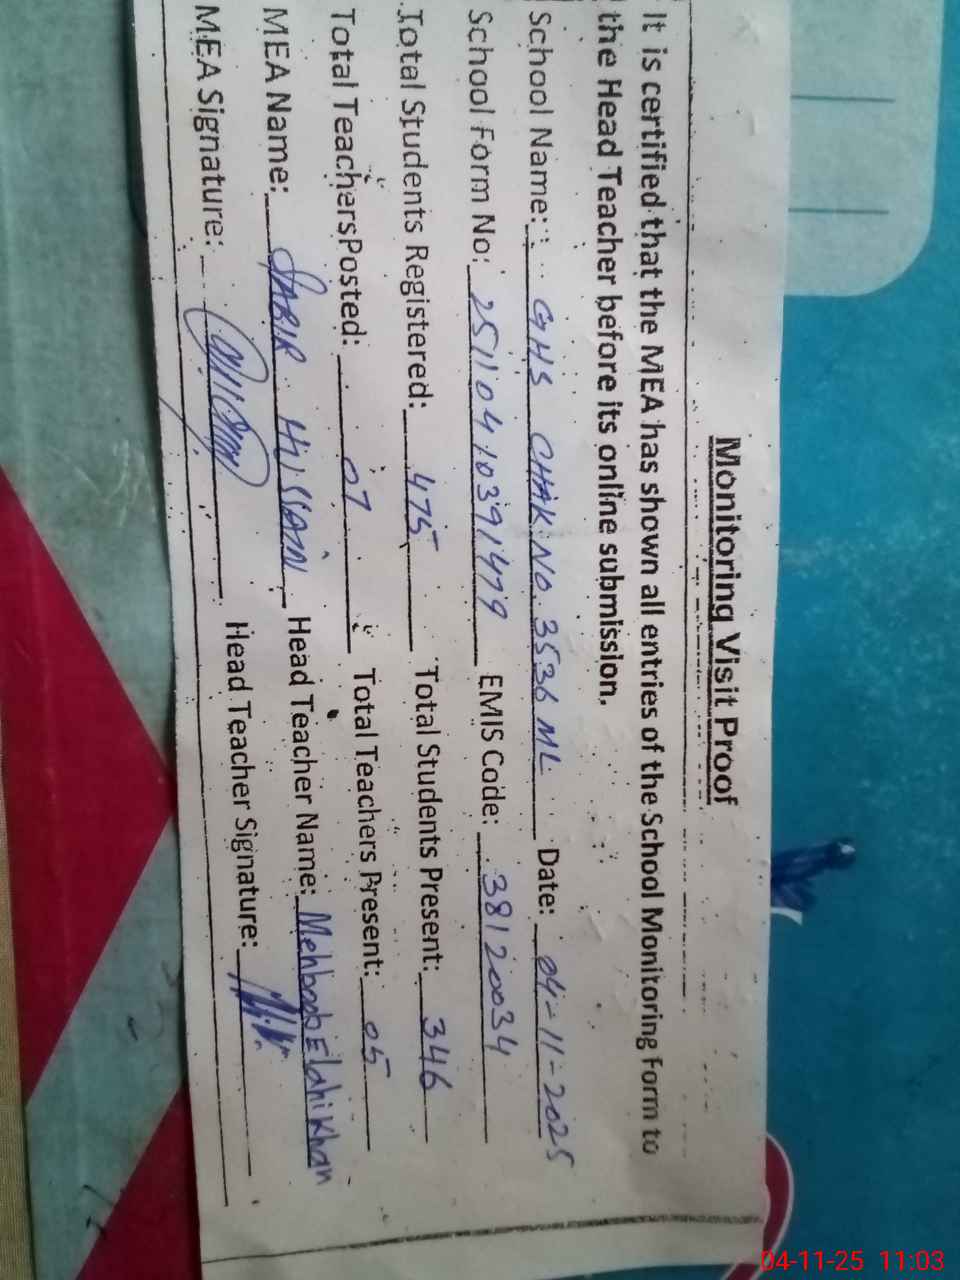 Monitoring Visit Proof
It is certified that the MEA has shown all entries of the School Monitoring Form to
the Head Teacher before its online submission.
School Name: GHS CHAK NO. 3536 ML Date: 04-11-2025
School Form No: 25110410391479 EMIS Code: 38120034
Total Students Registered: 475 Total Students Present: 346
Total TeachersPosted: 07 Total Teachers Present: 05
MEA Name: SABIR HUSSAIN Head Teacher Name: Mehboob Elahi Khan
MEA Signature: Head Teacher Signature:
04-11-25 11:03